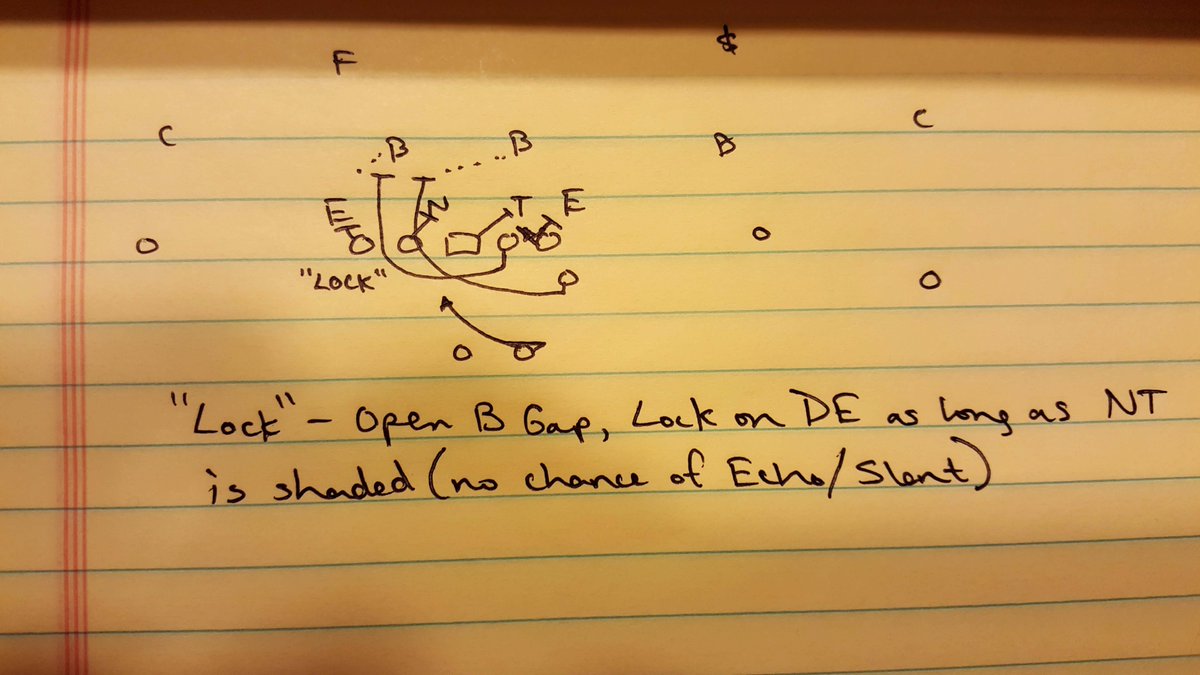 F $
C C
B B B
E N T E
"LOCK"
"Lock" - Open B Gap, Lock on DE as long as NT
is shaded (no chance of Echo/Slant)